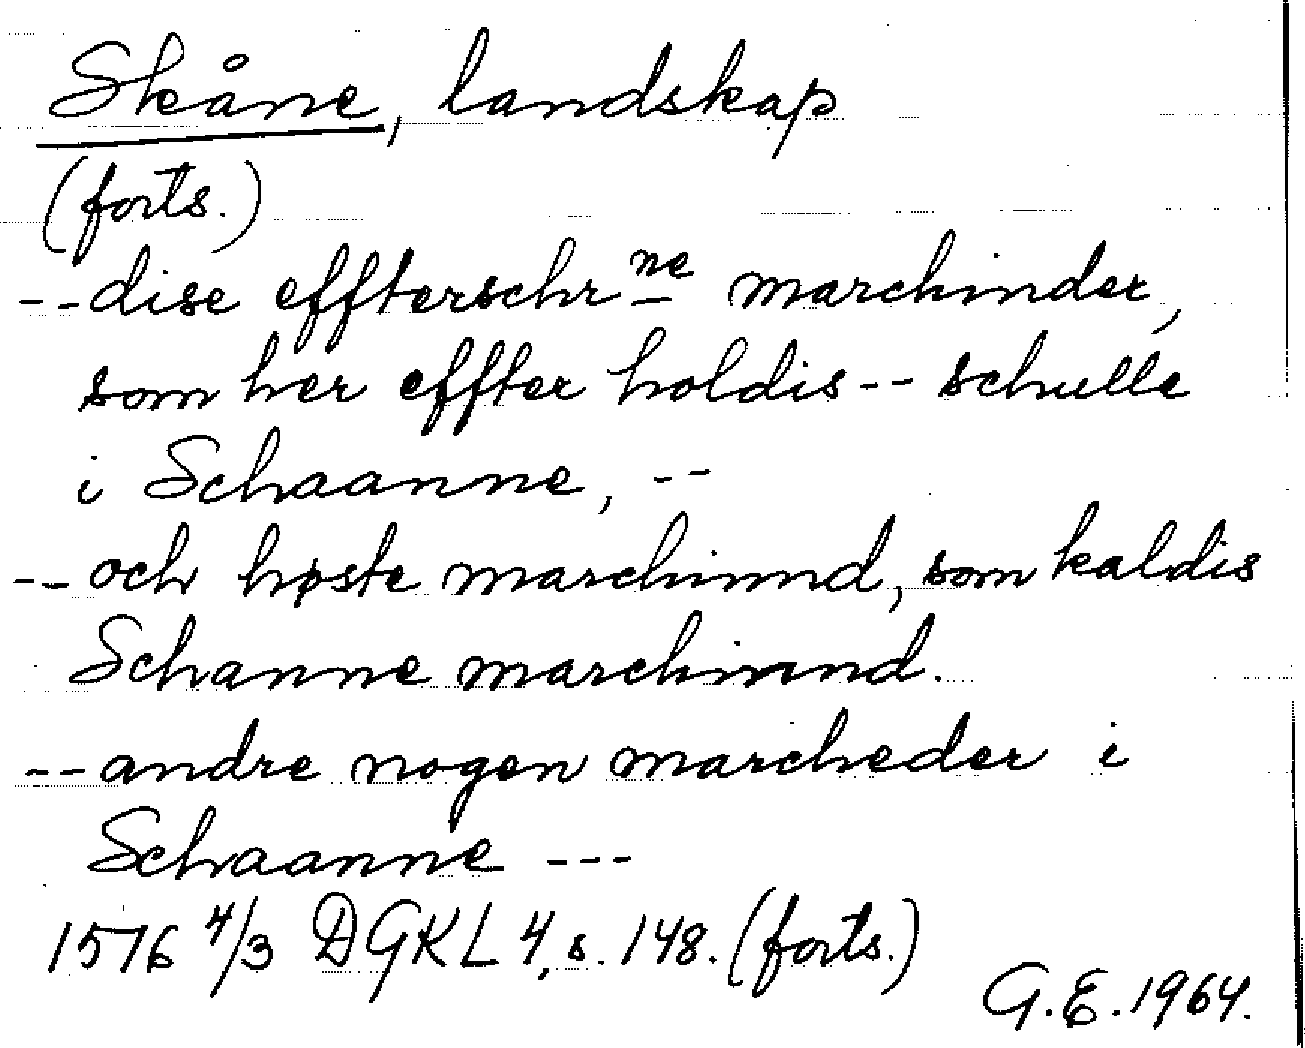 Skåne, landskap
(forts.)
-- dise effterschrne marchinder,
som her effter holdis -- schulle
i Schaanne, --
-- och høste marchinnd, som kaldis
Schanne marchinnd.
-- andre nogen marcheder i
Schaanne ---
1576 4/3 DGKL 4, s. 148. (forts.)
G.E. 1964.